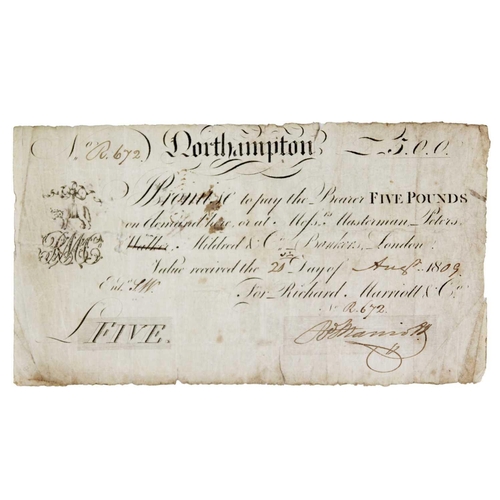 No R.672. Northampton £5.0.0.
I Promise to pay the Bearer FIVE POUNDS
on demand here or at Messrs. Masterman, Peters,
Mildred & Co. Bankers, London
Value received the 25th Day of Augt. 1809.
Entd. For Richard Marriott & Co.
No R.672.
£ FIVE. Rd Marriott